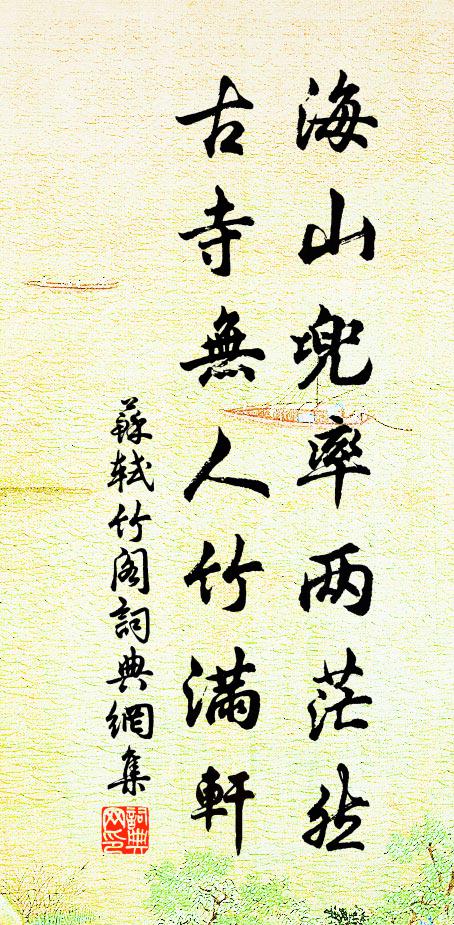 海山兜率两茫然
古寺無人竹滿軒
蘇軾竹阁詞典網集
詞典网印